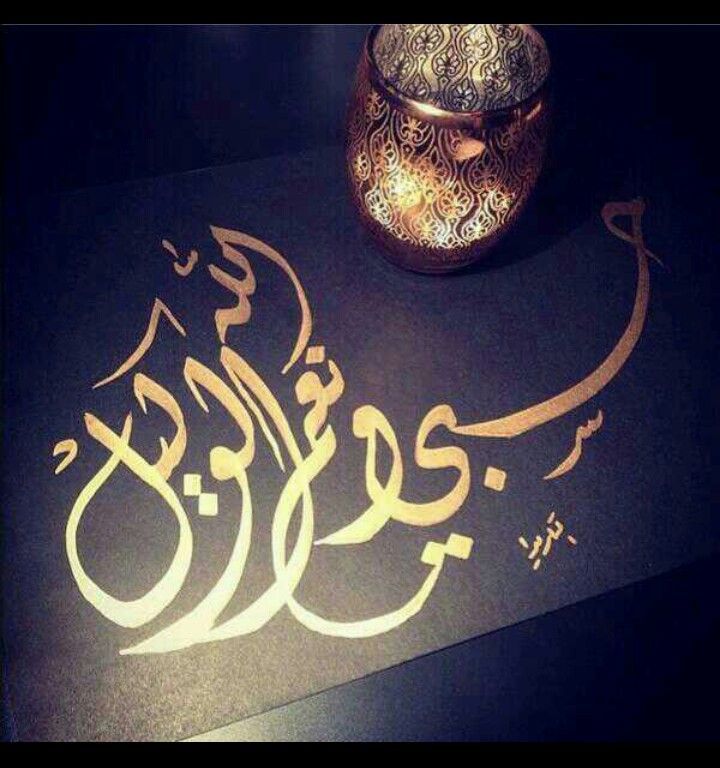 حسبي الله ونعم الوكيل